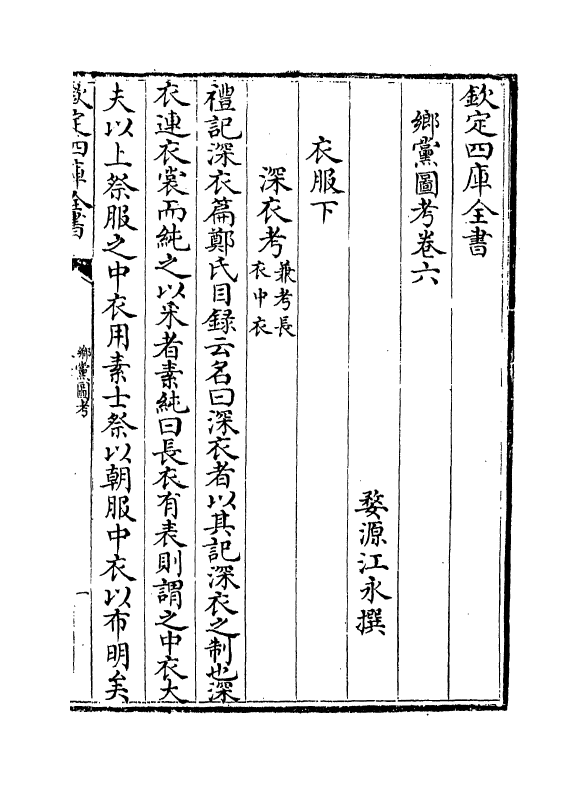 欽定四庫全書
鄉黨圖考卷六
婺源江永撰
衣服下
深衣考兼考長衣中衣
禮記深衣篇鄭氏目錄云名曰深衣者以其記深衣之制也深
衣連衣裳而純之以采者素純曰長衣有表則謂之中衣大
夫以上祭服之中衣用素士祭以朝服中衣以布明矣
欽定四庫全書
鄉黨圖考
一